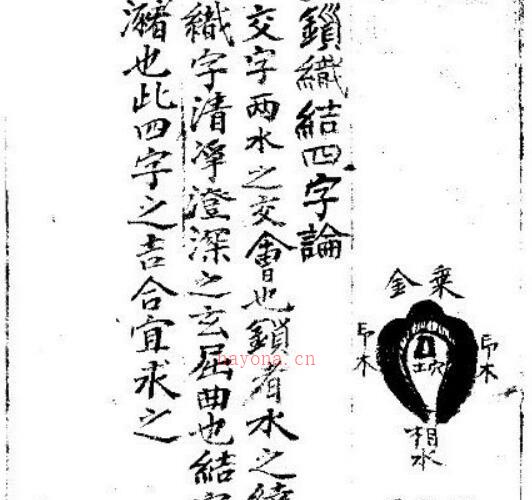 乘金
印木
穴土
印木
相水
鎖織結四字論
交字兩水之交會也鎖者水之
織字清淨澄深之玄屈曲也結
瀦也此四字之吉合宜求之
nayona.cn